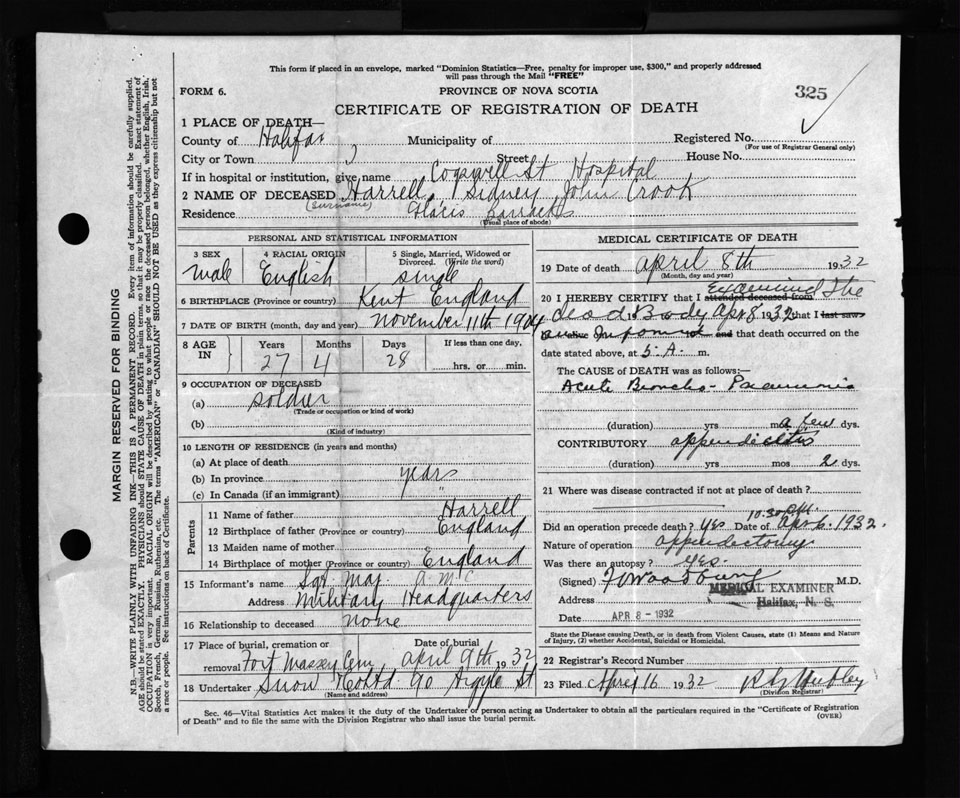 This form if placed in an envelope, marked "Dominion Statistics—Free, penalty for improper use, $300," and properly addressed
will pass through the Mail "FREE"
FORM 6.
PROVINCE OF NOVA SCOTIA
325
CERTIFICATE OF REGISTRATION OF DEATH
1 PLACE OF DEATH—
County of Halifax Municipality of Registered No.
(For use of Registrar General only)
City or Town Street House No.
If in hospital or institution, give name Cogswell St Hospital
2 NAME OF DECEASED Harrell, Sidney John Crook
(Surname)
Residence Glacis Barracks
(Usual place of abode)
PERSONAL AND STATISTICAL INFORMATION
3 SEX 4 RACIAL ORIGIN 5 Single, Married, Widowed or
Divorced. (Write the word)
Male English single
6 BIRTHPLACE (Province or country) Kent England
7 DATE OF BIRTH (month, day and year) November 11th 1904
8 AGE IN Years Months Days If less than one day,
27 4 28 hrs. or min.
9 OCCUPATION OF DECEASED
(a) soldier
(Trade or occupation or kind of work)
(b)
(Kind of industry)
10 LENGTH OF RESIDENCE (in years and months)
(a) At place of death
(b) In province years
(c) In Canada (if an immigrant) "
Parents
11 Name of father Harrell
12 Birthplace of father (Province or country) England
13 Maiden name of mother
14 Birthplace of mother (Province or country) England
15 Informant's name Sgt. Maj. A.M.C
Address Military Headquarters
16 Relationship to deceased none
17 Place of burial, cremation or Date of burial
removal Fort Massey Cem April 9th 1932
18 Undertaker Snow & Co Ltd. 90 Argyle St
(Name and address)
MEDICAL CERTIFICATE OF DEATH
19 Date of death April 8th 1932
(Month, day and year)
20 I HEREBY CERTIFY that I attended deceased from Examined the
dead Body Apr 8 1932 that I last saw
informed and that death occurred on the
date stated above, at 5. A. m.
The CAUSE OF DEATH was as follows:—
Acute Broncho-Pneumonia
(duration) yrs mos a few dys.
CONTRIBUTORY appendicitis
(duration) yrs mos 2 dys.
21 Where was disease contracted if not at place of death?
10.30 P.M.
Did an operation precede death? yes Date of Apr 6. 1932.
Nature of operation appendectomy
Was there an autopsy? yes.
(Signed) M.D.
MEDICAL EXAMINER
Address Halifax, N. S.
Date APR 8 - 1932
State the Disease causing Death, or in death from Violent Causes, state (1) Means and Nature
of Injury, (2) whether Accidental, Suicidal or Homicidal.
22 Registrar's Record Number
23 Filed April 16 1932
(Division Registrar)
Sec. 46—Vital Statistics Act makes it the duty of the Undertaker or person acting as Undertaker to obtain all the particulars required in the "Certificate of Registration
of Death" and to file the same with the Division Registrar who shall issue the burial permit.
(OVER)
MARGIN RESERVED FOR BINDING
N.B.—WRITE PLAINLY WITH UNFADING INK—THIS IS A PERMANENT RECORD. Every item of information should be carefully supplied.
AGE should be stated EXACTLY. PHYSICIANS should STATE CAUSE OF DEATH in plain terms, so that it may be properly classified. Exact statement of
OCCUPATION is very important. RACIAL ORIGIN will be described by stating to what people or race the deceased person belonged, whether English, Irish,
Scotch, French, German, Russian, Ruthenian, etc. The terms "AMERICAN" or "CANADIAN" SHOULD NOT BE USED as they express citizenship but not
a race or people. See instructions on back of Certificate.